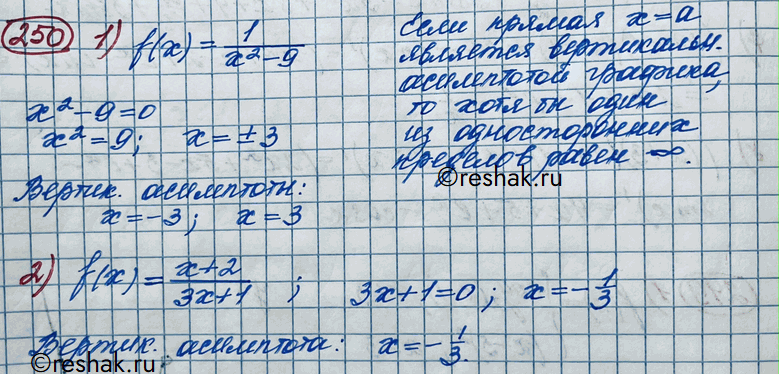 250 1) f(x) = 1/(x² - 9)
Если прямая x = a
является вертикальн.
асимптотой графика,
то хотя бы один
из односторонних
пределов равен ∞.
x² - 9 = 0
x² = 9; x = ± 3
Вертик. асимптоты:
x = -3; x = 3
©reshak.ru
2) f(x) = (x+2)/(3x+1) ; 3x+1=0; x = -1/3
Вертик. асимптота: x = -1/3.
©reshak.ru